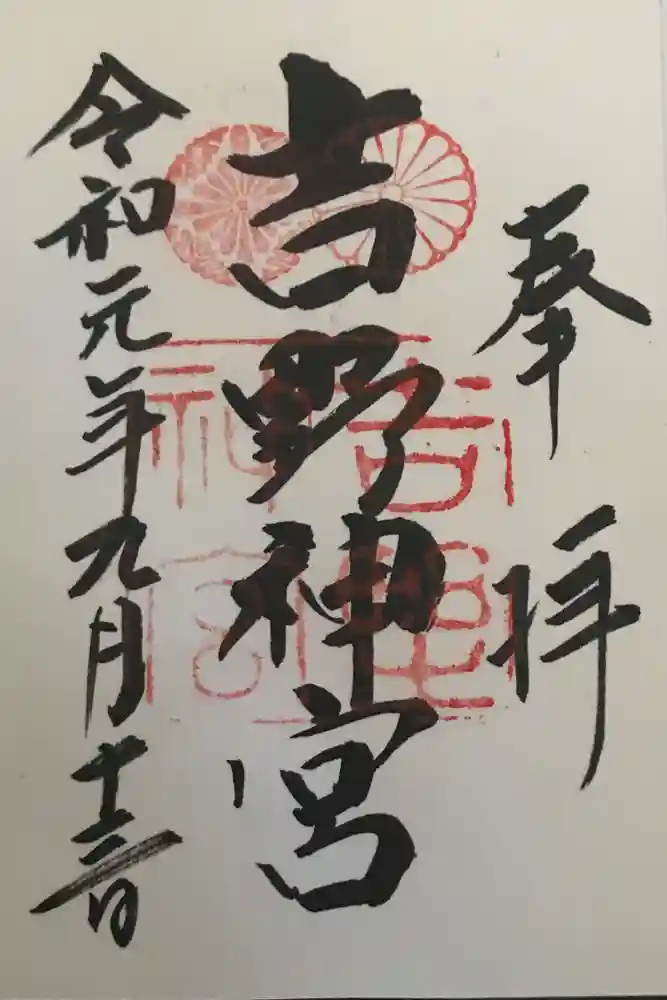 奉拝
吉野神宮
令和元年九月十三日
吉野
神宮